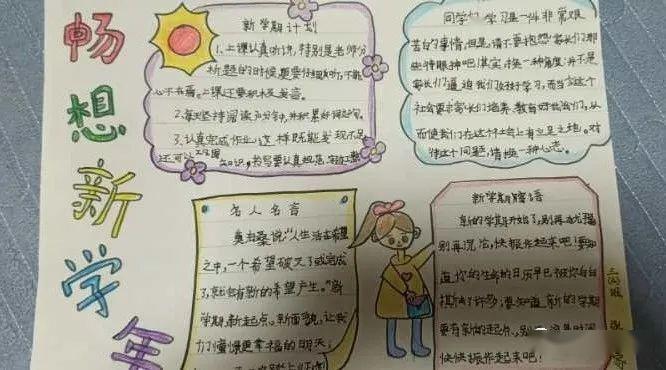 畅想新学年
新学期计划
1、上课认真听讲，特别是老师分
析题的时候，更要仔细听，不能
心不在焉。上课还要积极发言。
2、每天坚持阅读30分钟，并积累好词好句。
3、认真完成作业，这样既能发现不足
还可以巩固知识，书写要认真规范
同学们学习是一件非常艰
苦的事情，但是，请不要抱怨家长们那
些特眼神吧！其实，换一种角度，并不是
家长们逼迫我们好好学习，而当今这个
社会要求家长们培养、教育好我们，从
而使我们在这个社会上有立足之地。对
待这个问题，请换一种心态。
名人名言
奠泊桑说："人生活在希望
之中，一个希望破灭了或完成
了，就会有新的希望产生。"新
学期，新起点，新面貌，让我
们憧憬更幸福的明天！
新学期赠语
新的学期开始了，别再忧郁
别再沉沦，快振作起来吧！要知
道，你的生命的日历早已被你白白
撕去了许多；要知道，新的学期
要有新的起点，别
快快振作起来吧！
三(2)班